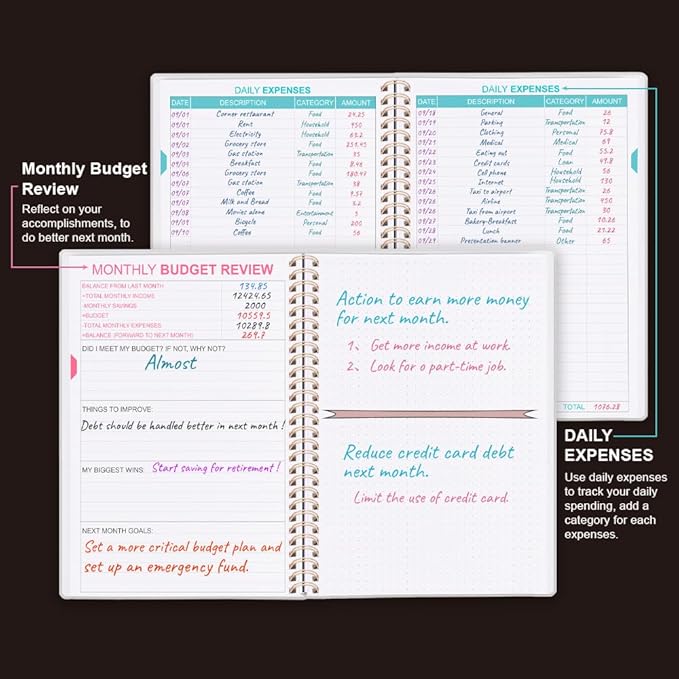 DAILY EXPENSES
DATE DESCRIPTION CATEGORY AMOUNT
09/01 Corner restaurant Food 24.25
09/01 Rent Household 950
09/01 Electricity Household 63.2
09/02 Grocery store Food 251.45
09/03 Gas station Transportation 35
Breakfast Food 8.46
09/06 Grocery store Food 180.47
09/07 Gas station Transportation 38
09/07 Coffee Food 9.37
09/07 Milk and Bread Food 3.2
09/08 Movies alone Entertainment 5
Bicycle Personal 200
09/10 Coffee Food 56
DAILY EXPENSES
DATE DESCRIPTION CATEGORY AMOUNT
09/18 General Food 26
09/19 Parking Transportation 12
09/20 Clothing Personal 75.8
09/21 Medical Medical
09/22 Eating out Food 53.2
09/23 Credit cards Loan 49.8
09/24 Cell phone Household 56
09/25 Internet Household 130
09/26 Taxi to airport Transportation 26
09/26 Airline Transportation 450
09/26 Taxi from airport Transportation 30
09/27 Bakery-Breakfast Food 10.26
09/28 Lunch Food 21.22
09/29 Presentation banner Other 65
TOTAL 1076.28
Monthly Budget
Review
Reflect on your
accomplishments, to
do better next month.
MONTHLY BUDGET REVIEW
BALANCE FROM LAST MONTH 134.85
+TOTAL MONTHLY INCOME 12424.65
-MONTHLY SAVINGS 2000
=BUDGET 10559.5
-TOTAL MONTHLY EXPENSES 10289.8
=BALANCE (FORWARD TO NEXT MONTH) 269.7
DID I MEET MY BUDGET? IF NOT, WHY NOT?
Almost
THINGS TO IMPROVE:
Debt should be handled better in next month !
MY BIGGEST WINS: Start saving for retirement !
NEXT MONTH GOALS:
Set a more critical budget plan and
set up an emergency fund.
Action to earn more money
for next month.
1、 Get more income at work.
2、 Look for a part-time job.
Reduce credit card debt
next month.
Limit the use of credit card.
DAILY
EXPENSES
Use daily expenses
to track your daily
spending, add a
category for each
expenses.